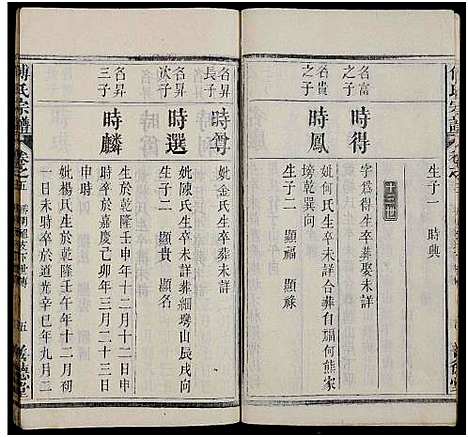 生子一 時典
十三世
名富之子
時得
字爲得生卒葬娶未詳
名貴之子
時鳳
妣何氏生卒未詳合葬自垅何熊家塝乾巽向
生子二 顯福 顯祿
名昇長子
時尊
妣金氏生卒葬未詳
名昇次子
時選
妣陳氏生卒未詳葬細塝山辰戌向
生子二 顯貴 顯名
名昇三子
時麟
生於乾隆壬申年十二月十二日申時卒於嘉慶己卯年三月二十三日
妣楊氏生於乾隆壬午年十二月初一日未時卒於道光辛巳年九月二
傅氏宗譜
卷之五
五